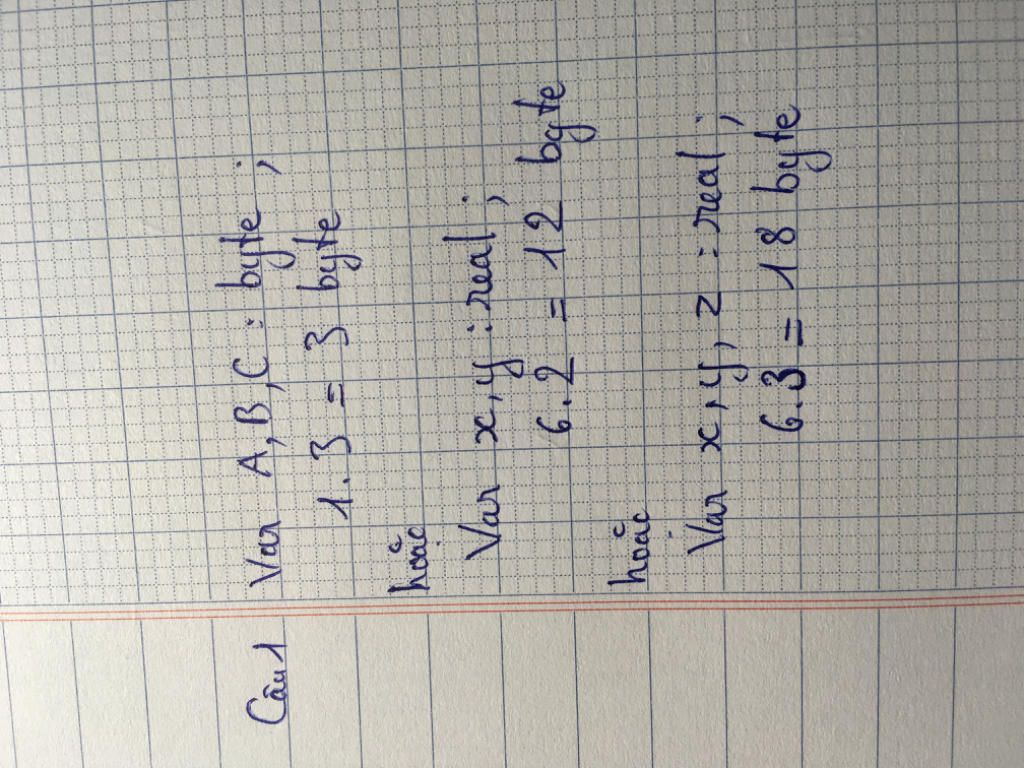 Câu 1 Var A, B, C : byte ;
1 . 3 = 3 byte
hoặc
Var x, y : real ;
6 . 2 = 12 byte
hoặc
Var x, y, z : real ;
6 . 3 = 18 byte